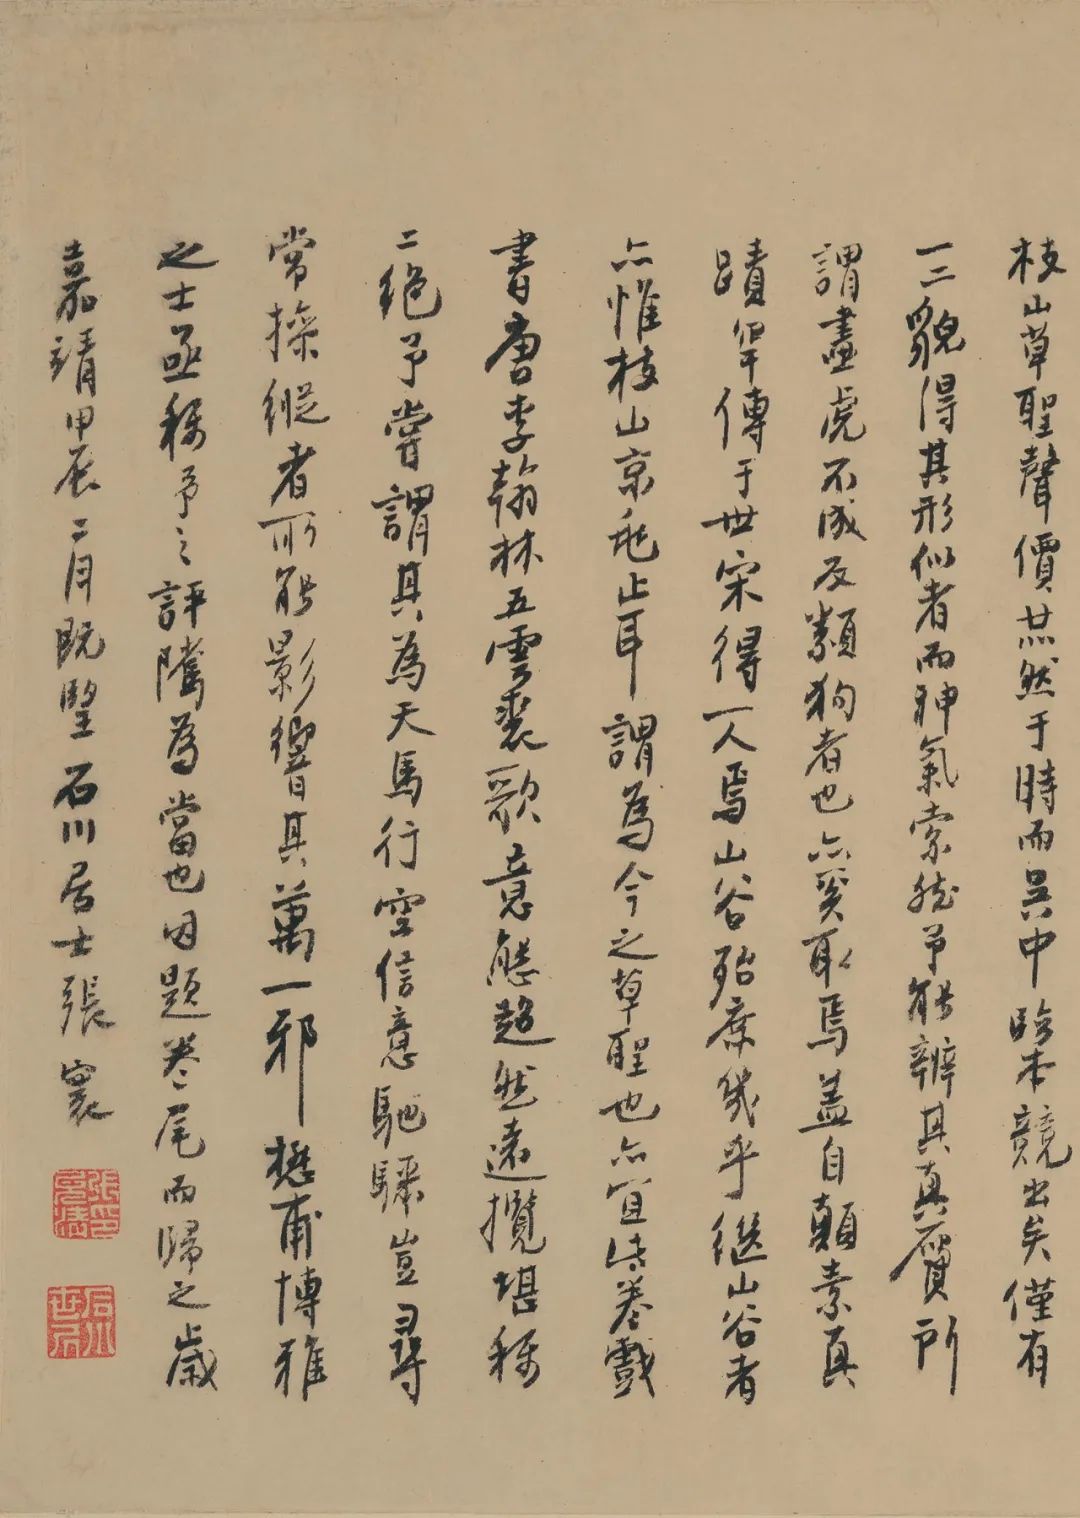 枝山草聖聲價燕然于時而吳中臨本競出矣僅有
一二貌得其形似者而神氣索然予能辨其真贋所
謂畫虎不成反類狗者也亦奚取焉蓋自顛素真
蹟罕傳于世宋得一人焉山谷殆庶幾乎繼山谷者
亦惟枝山京兆止耳謂為今之草聖也亦宜此卷戲
書唐李翰林五雲裘歌意態超然遠攬堪稱
二絕予嘗謂其為天馬行空信意馳驟豈尋
常操縱者所能影響其萬一邪懋甫博雅
之士亟稱予之評騭為當也因題卷尾而歸之歲
嘉靖甲辰二月既望石川居士張寰